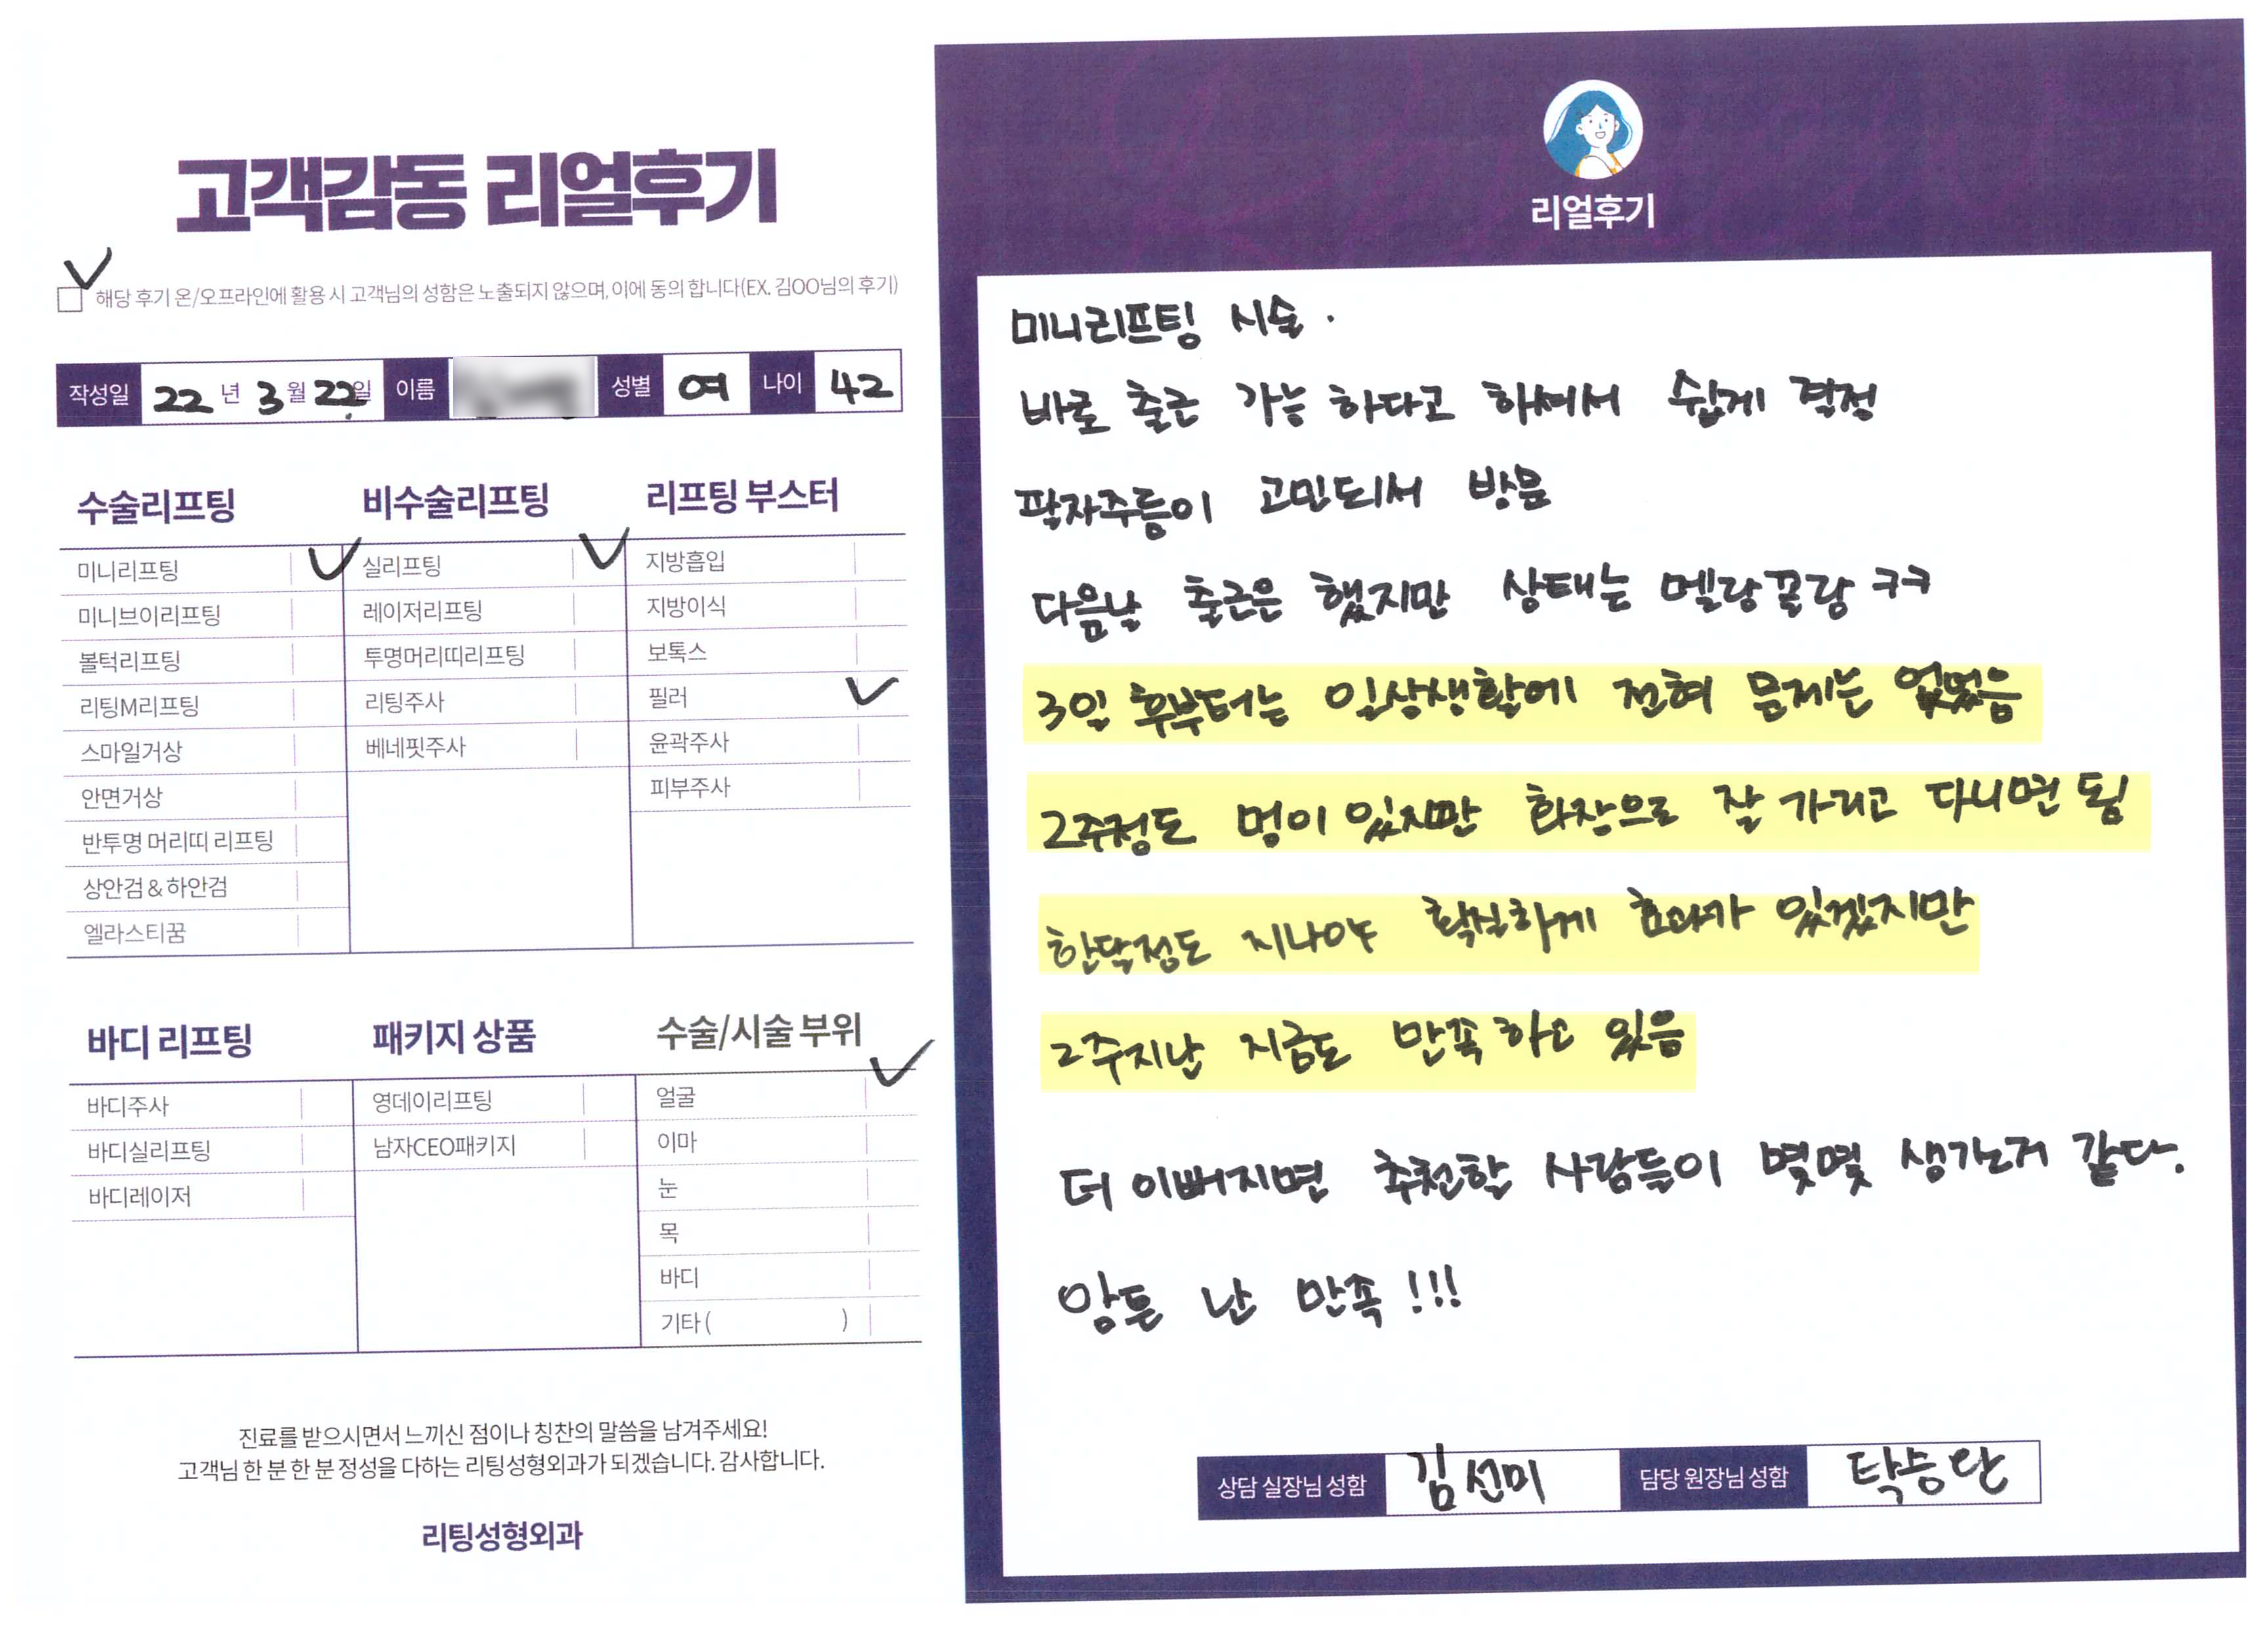 고객감동 리얼후기
해당 후기 온/오프라인에 활용 시 고객님의 성함은 노출되지 않으며, 이에 동의 합니다(EX. 김OO님의 후기)
작성일 22년 3월 22일 이름 성별 여 나이 42
수술리프팅
미니리프팅
미니브이리프팅
볼턱리프팅
리팅M리프팅
스마일거상
안면거상
반투명 머리띠 리프팅
상안검&하안검
엘라스티꿈
비수술리프팅
실리프팅
레이저리프팅
투명머리띠리프팅
리팅주사
베네핏주사
리프팅 부스터
지방흡입
지방이식
보톡스
필러
윤곽주사
피부주사
바디 리프팅
바디주사
바디실리프팅
바디레이저
패키지 상품
영데이리프팅
남자CEO패키지
수술/시술 부위
얼굴
이마
눈
목
바디
기타 ( )
진료를 받으시면서 느끼신 점이나 칭찬의 말씀을 남겨주세요!
고객님 한 분 한 분 정성을 다하는 리팅성형외과가 되겠습니다. 감사합니다.
리팅성형외과
리얼후기
미니리프팅 시술.
바로 출근 가능 하다고 하셔서 쉽게 결정
팔자주름이 고민되서 방문
다음날 출근은 했지만 상태는 멜랑꼴랑 ㅋㅋ
3일 후부터는 일상생활에 전혀 문제는 없었음
2주정도 멍이 있지만 화장으로 잘 가리고 다니면 됨
한달정도 지나야 확실하게 효과가 있겠지만
2주지난 지금도 만족 하고 있음
더 이뻐지면 추천할 사람들이 몇몇 생기는거 같다.
암튼 난 만족!!!
상담 실장님 성함 김선미 담당 원장님 성함